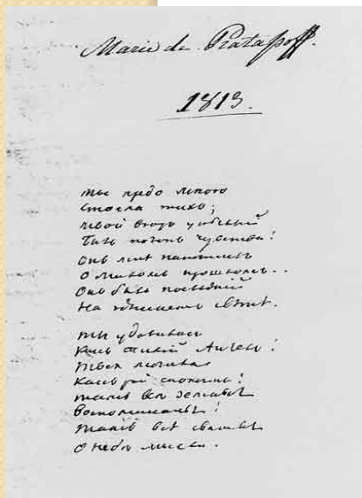 Marie de Pratassoff.
1813.
Ты предо мною
Стояла тихо;
Твой взоръ унылый
Былъ полонъ чувства!
Онъ мнѣ напомнилъ
О миломъ прошломъ..
Онъ былъ послѣдній
На здѣшнемъ свѣтѣ.
Ты удалилась
Какъ тихій Ангелъ!
Твоя могила
Какъ рай спокойна!
Тамъ всѣ земныя
Воспоминанья!
Тамъ всѣ святыя
О небѣ мысли.